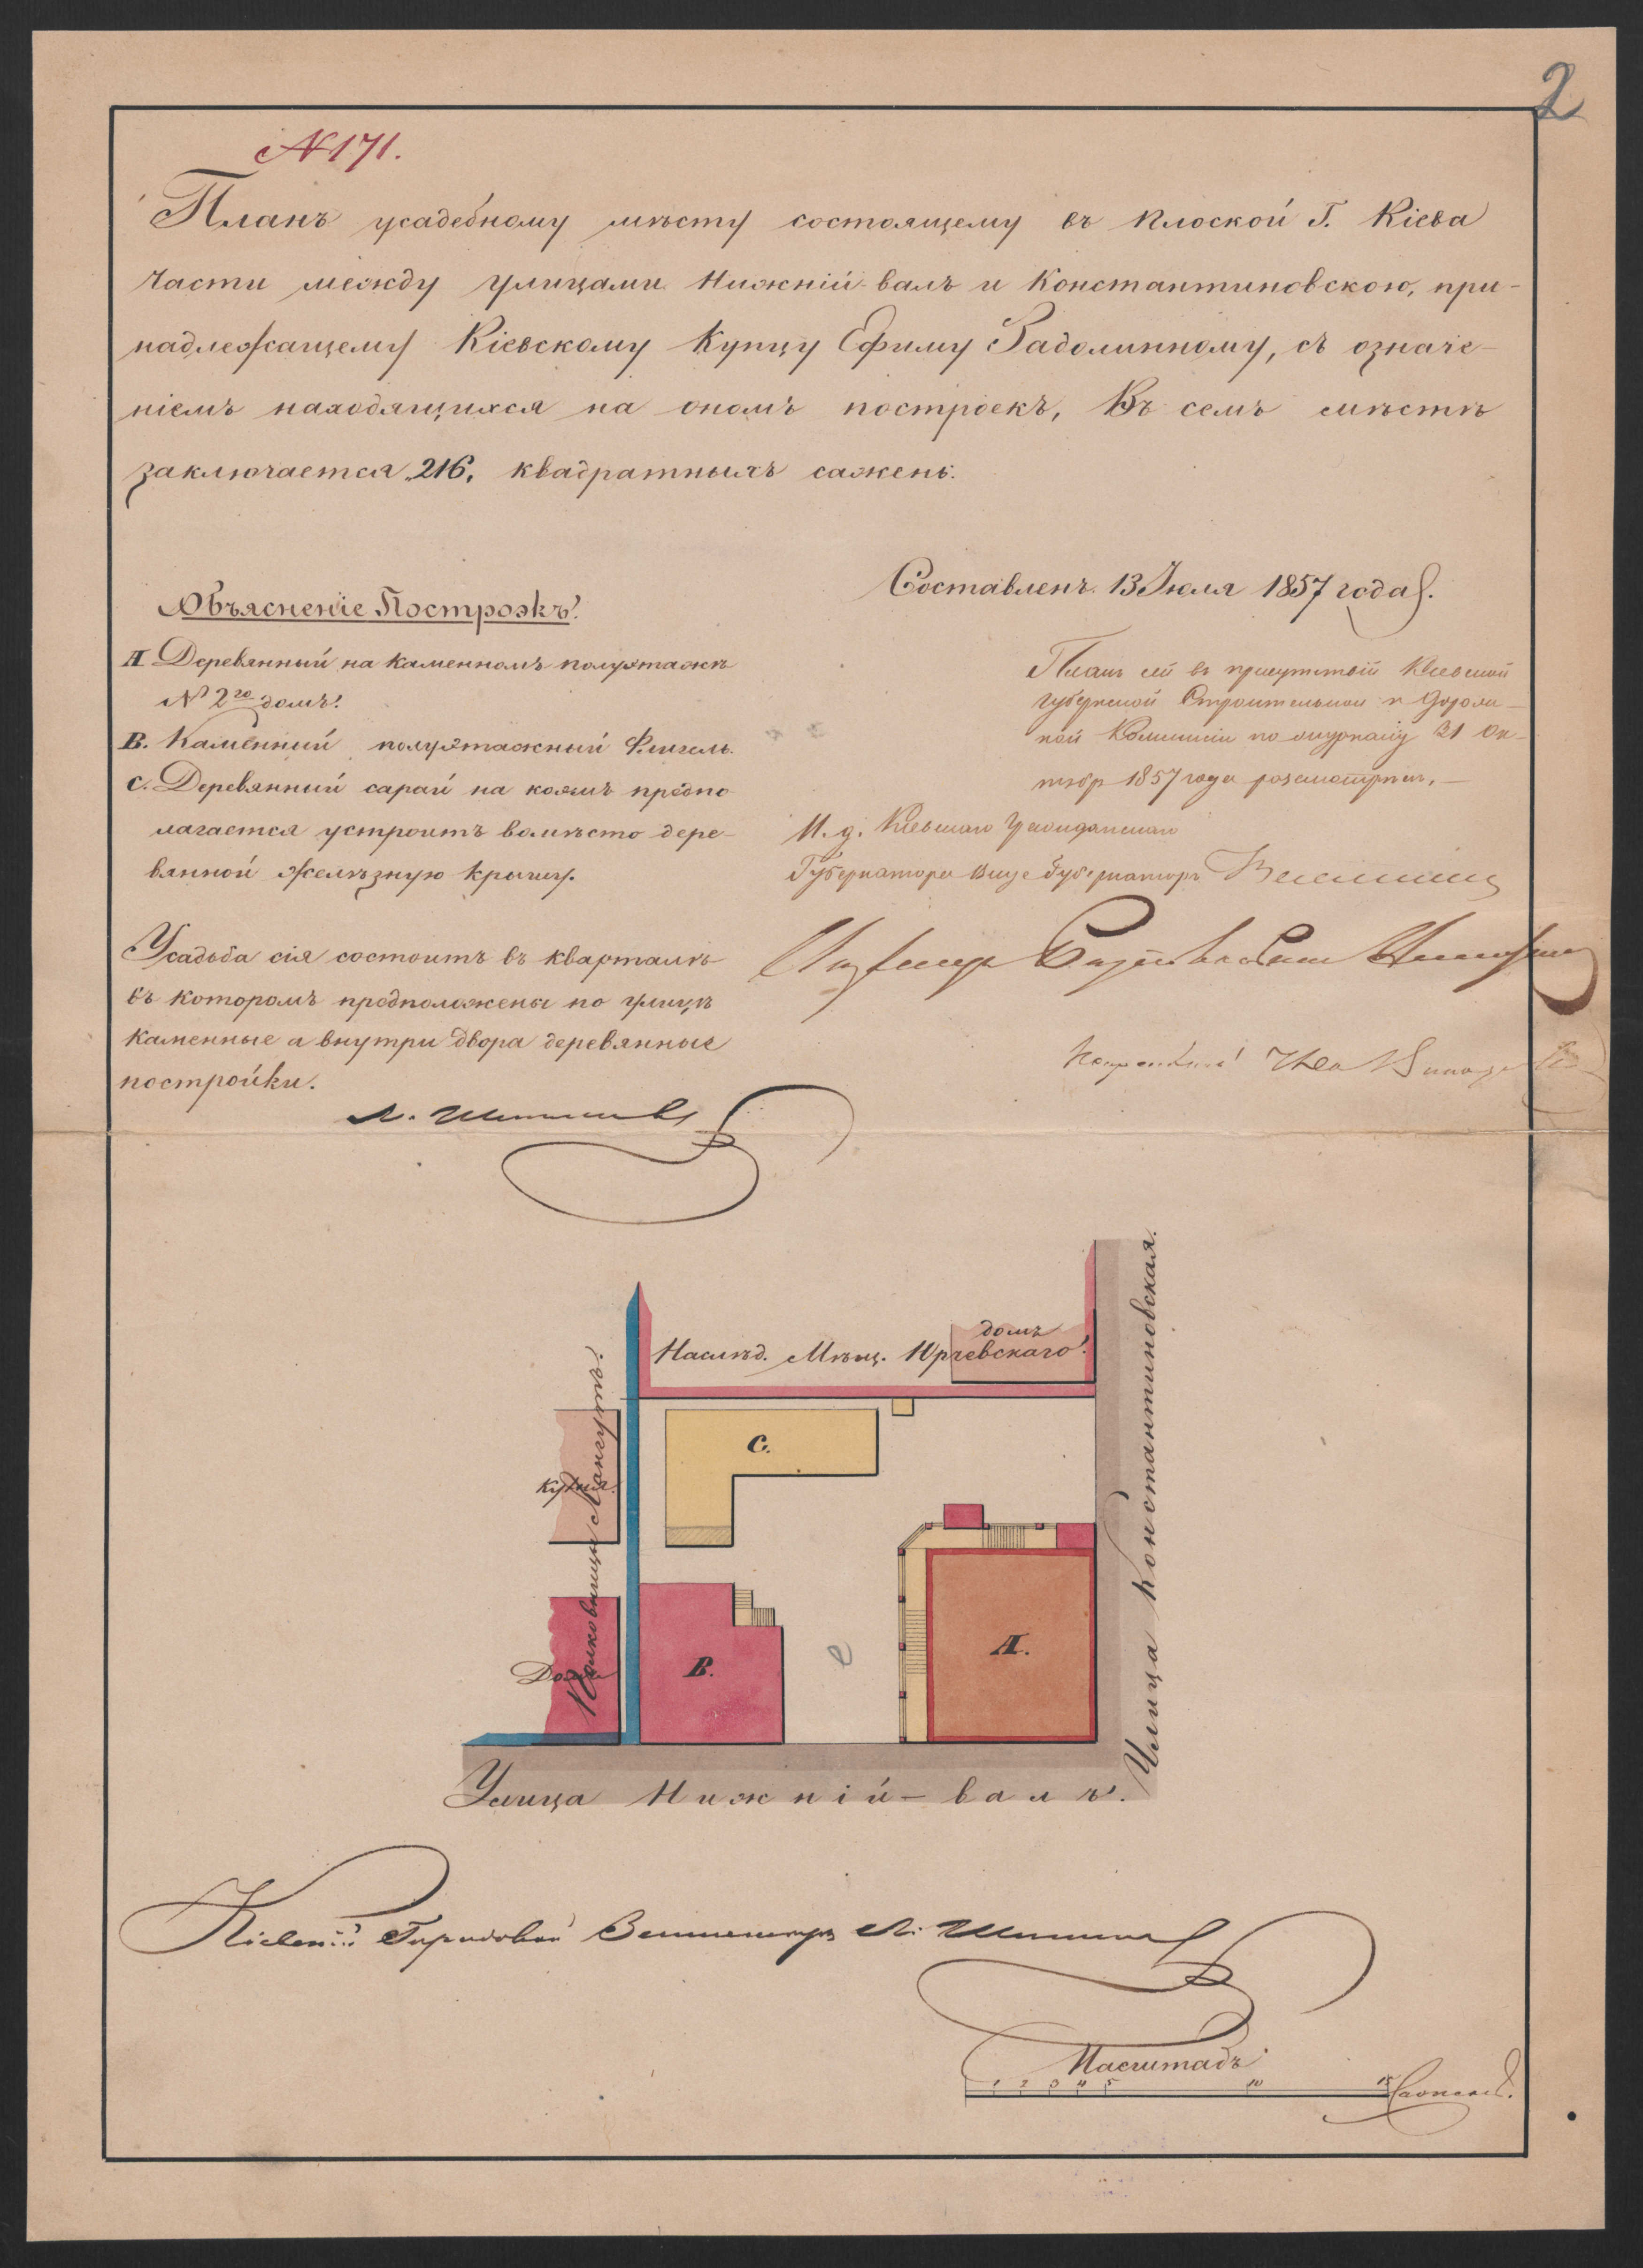 2
№ 171.
Планъ усадебному мѣсту состоящему въ Плоской Г. Кіева
Части между улицами Нижній-валъ и Константиновскою, при-
надлежащему Кіевскому Купцу Ефиму Задолинному, съ означе-
ніемъ находящихся на ономъ построекъ, Въ семъ мѣстѣ
заключается 216, квадратныхъ сажень.
Составленъ 13 Іюля 1857 года.
Объясненіе Построэкъ.
А Деревянный на Каменномъ полуэтажѣ
№ 2го домъ.
В. Каменный полуэтажный Флигель.
С. Деревянный сарай на коемъ предпо
лагается устроитъ вомѣсто дере-
вянной Желѣзную крышу.
Усадьба сія состоитъ въ кварталѣ
въ которомъ предположены по улицѣ
Каменные а внутри двора деревянные
постройки.
Планъ сей въ присутствіи Кіевской
Губернской Строительной и Дорож-
ной Коммисіи по журналу 21 Ок-
тябр 1857 года разсмотренъ.
И. д. Кіевскаго Гражданскаго
Губернатора Вице Губернаторъ
Наслѣд. Мѣщ. Юрчевскаго.
домъ
Улица Константиновская.
кухня.
С.
Полковницы
Домъ
В.
А.
Улица Нижній-валъ.
Кіевскій Городовой
Масштабъ
1 2 3 4 5 10 15 Сажень.